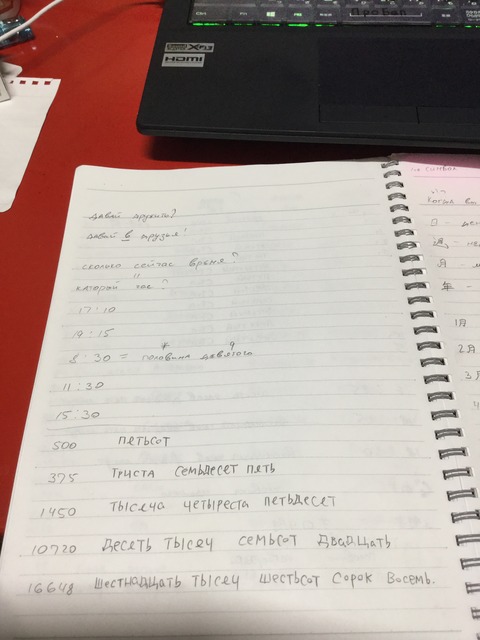 Пробел
HDMI
давай дружить?
давай в друзья!
сколько сейчас время?
каторый час?
17:10
19:15
8:30 = половина девятого
11:30
15:30
500 петьсот
375 триста семьдесет петь
1450 тысеча четыреста петьдесет
10720 десеть тысеч семьсот двадцать
16648 шестнадцать тысеч шестьсот сорок восемь.
символ
Когда
日 -
週 -
月 -
年 -
1月
2月
3月